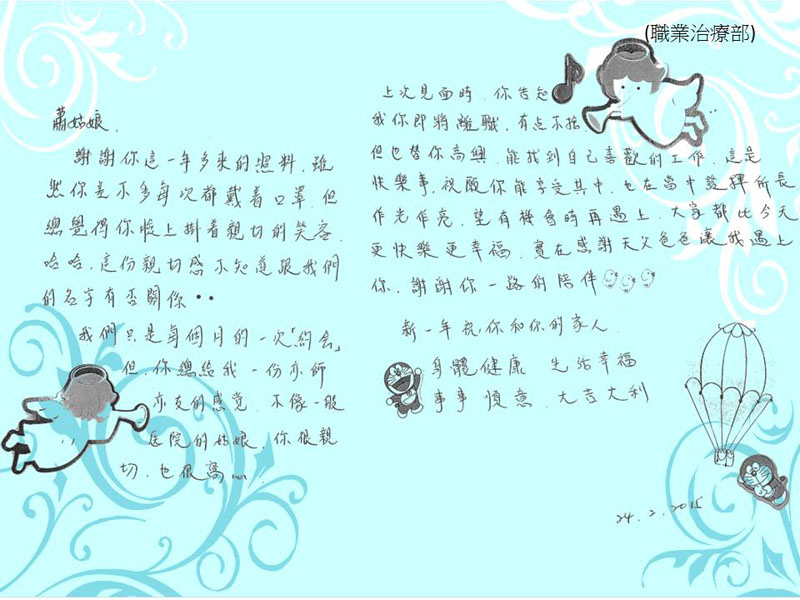 (職業治療部)
蕭姑娘,
謝謝你這一年多來的照料,雖
然你差不多每次都戴着口罩,但
總覺得你臉上掛着親切的笑容,
哈哈,這份親切感不知道跟我們
的名字有否關係••
我們只是每個月的一次「約会」
但,你總給我一份亦師
亦友的感觉,不像一般
医院的姑娘,你很親
切,也很窩心.
上次見面時,你告知
我你即將離職,有点不捨,
但也替你高興,能找到自己喜歡的工作,這是
快樂事,祝願你能享受其中,也在當中發揮所長,
作光作亮,望有機會時再遇上,大家都比今天
更快樂更幸福,實在感謝天父爸爸讓我遇上
你,謝謝你一路的陪伴
新一年祝你和你的家人
身體健康 生活幸福
事事順意,大吉大利
24.2.2015